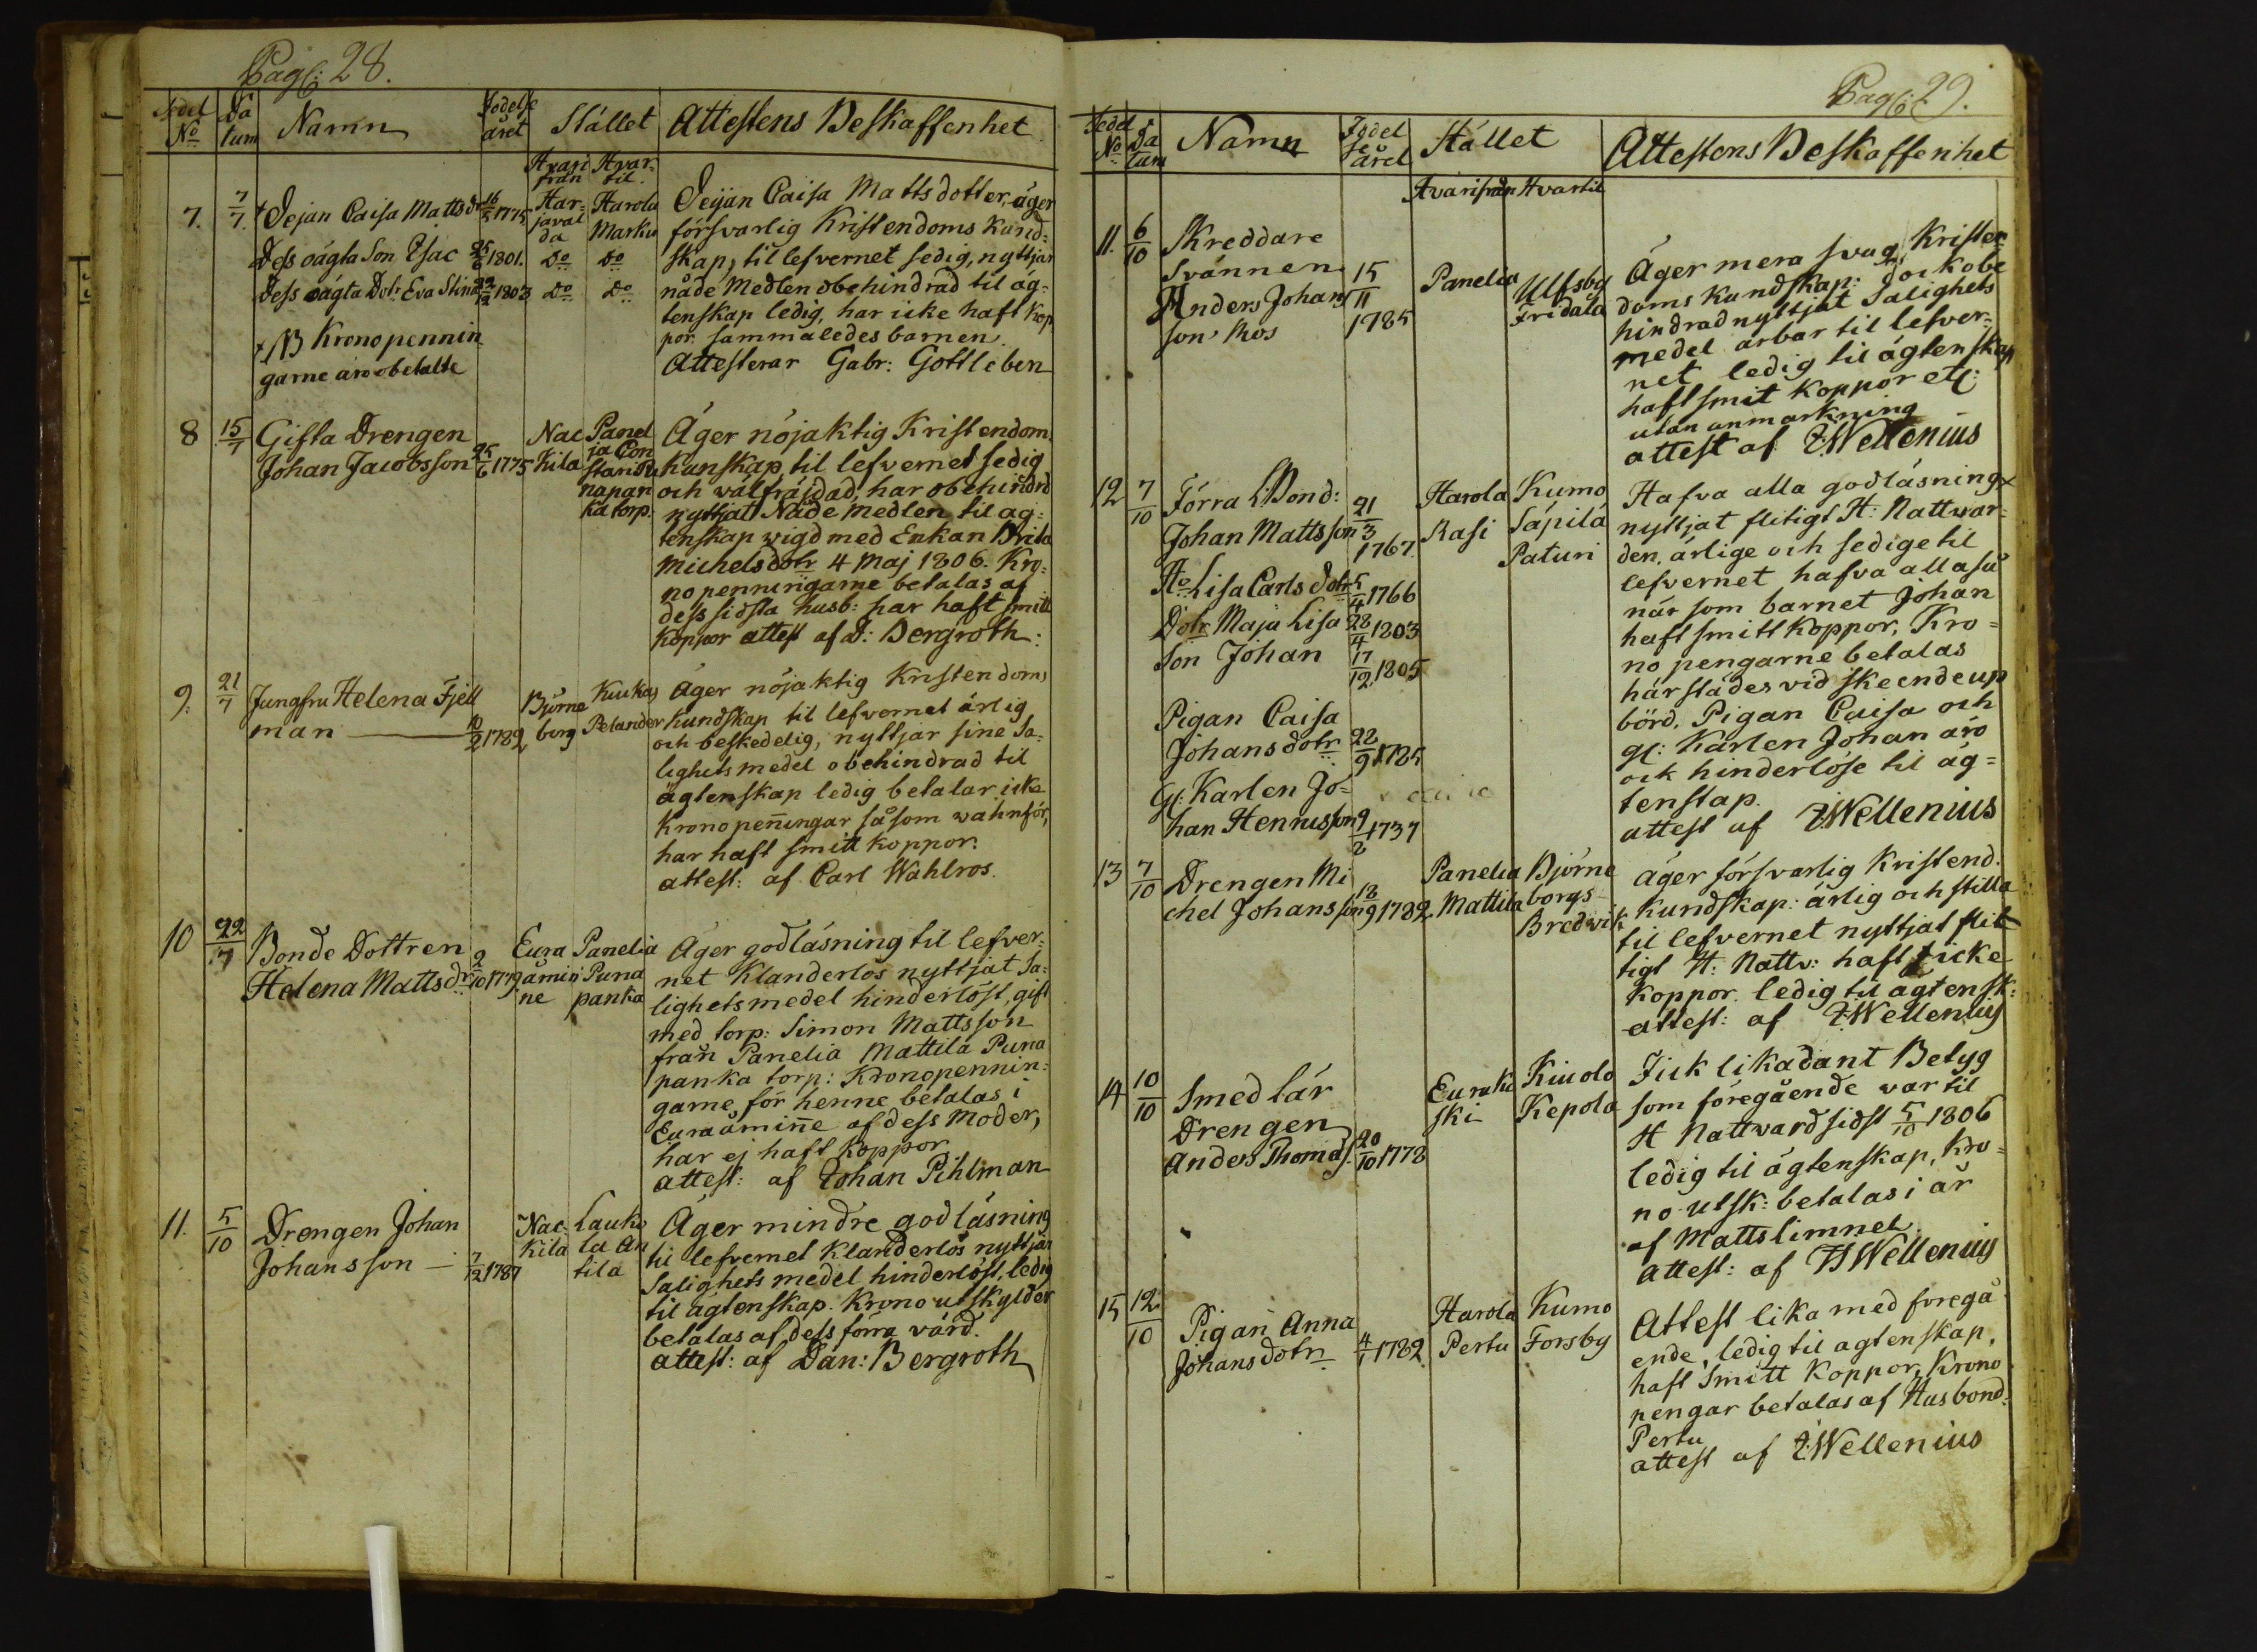 Pag: 28.
Sedel No
Da tum
Namn
Födelse året
Stället
Attestens Beskaffenhet
Hvari från
Hvar til.
7.
7/7.
+ Pejan Caisa Mattsdr
16/5 1775
Har-
javal
da
Harola
Marku
Dess oägta Son Isac
25/6 1801.
Do
Do
Dess oägta Dotr Eva Stina
22/12 1803
Do
Do
+ NB Kronopennin
garne äro obetalte
Peijan Caisa Mattsdotter, äger
försvarlig Kristendoms kund-
skap, til lefvernet sedig, nyttjar
nåde Medlen obehindrad til äg-
tenskap ledig, har icke haft kop
por sammaledes barnen.
Attesterar Gabr: Gottleben
8
15/7
Gifta Drengen
Johan Jacobsson
25/6 1775
Nac
Kila
Panel
ja Con
stan
napan
ka torp.
Äger nöjaktig Kristendom.
kunskap, til lefvernet sedig
och välfräjdad, har obehindrd
nyttjat Nåde medlen til äg-
tenskap wigd med Enkan Brita
Michelsdotr 4 Maj 1806. Kro-
nopenningarne betalas af
dess sidsta husb: har haft smitt
koppor attest af D: Bergroth:
9.
21/7
Jungfru Helena Fjell
man
10/2 1782
Björne
borg
Kiukas
Pelander
Äger nöjaktig Kristendoms
kundskap til lefvernet ärlig
och beskedelig, nyttjar sine Sa-
lighets medel obehindrad til
ägtenskap ledig betalar icke
Kronopeñingar såsom wahnför,
har haft smitt koppor.
attest: af Carl Wahlros.
10
22/7
Bonde Dottren
Helena Mattsdr
2/10 1779
Eura
åmin
ne
Panelia
Puna
panka
Äger god läsning til lefver-
net Klanderlös nyttjat Sa-
lighetsmedel hinderlöst, gift
med torp: Simon Mattsson
från Panelia Mattila Puna
panka torp: Kronopennin-
garne för henne betalas i
Euraåmiñe af dess Moder,
har ej haft koppor
attest: af Johan Pihlman
11.
5/10
Drengen Johan
Johansson
7/12 1787
Nac-
kila
Lauko
la An
tila
Äger mindre god läsning
til lefvernet Klanderlös nyttjar
Salighets medel hinderlöst, ledig
til ägtenskap. Krono utskylder
betalas af dess förra värd.
attest: af Dan: Bergroth
Pag: 29.
Sedel No
Da tum
Namn
Födel se året
Stället
Attestens Beskaffenhet
Hvarifrån
Hvartil
11.
6/10
Skreddare
Svännen
Anders Johans
son Kos
15/11 1785
Panelia
Ulfsby
Fridala
Äger mera svag Kristen
doms kundskap: dock obe
hindrad nyttjat Salighets
medel ärbar til lefver-
net ledig til ägtenskap
haft smit koppor etc:
utan anmärkning
attest af Z:Wellenius
12
7/10
Förra Bond:
Johan Mattsson
21/3 1767.
Harola
Rasi
Kumo
Säpilä
Paturi
Ho Lisa Carls Dotr
5/4 1766
Dotr Maja Lisa
28/4 1803
Son Johan
17/12 1805
Pigan Caisa
Johans dotr
22/9 1785
Gl: Karlen Jo-
han Hennusson
9/2 1737
Hafva alla god läsning
nyttjat flitigt H: Nattwar-
den, ärlige och sedige til
lefvernet hafva alla så
när som barnet Johan
haft smitt koppor, Kro-
no pengarne betalas
härstädes vid skeende up
börd. Pigan Caisa och
gl: Karlen Johan äro
ock hinderlöse til äg-
tenskap.
attest af Z:Wellenius
13
7/10
Drengen Mi
chel Johansson
18/9 1782
Panelia
Mattila
Björne
borgs
Bredwik
Äger försvarlig Kristend.
kundskap: ärlig och stilla
til lefvernet nyttjat flit
tigt H: Nattv: haft icke
koppor. ledig til ägtensk:
attest: af Z:Wellenius
14
10/10
Smed lär
Drengen
Anders Thomass.
20/10 1778
Euraki
ski
Kiuolo
Kepola
Fick likadant Betyg
som föregående var til
H Nattward sidst 5/10 1806
ledig til ägtenskap, Kro-
no utsk: betalas i år
af Matts limnel.
attest: af Z:Wellenius
15
12/10
Pigan Anna
Johans dotr
4/1 1782
Harola
Pertu
Kumo
Forsby
Attest lika med föregå
ende, ledig til ägtenskap,
haft smitt koppor, Krono
pengar betalas af Husbond:
Pertu
attest af Z:Wellenius